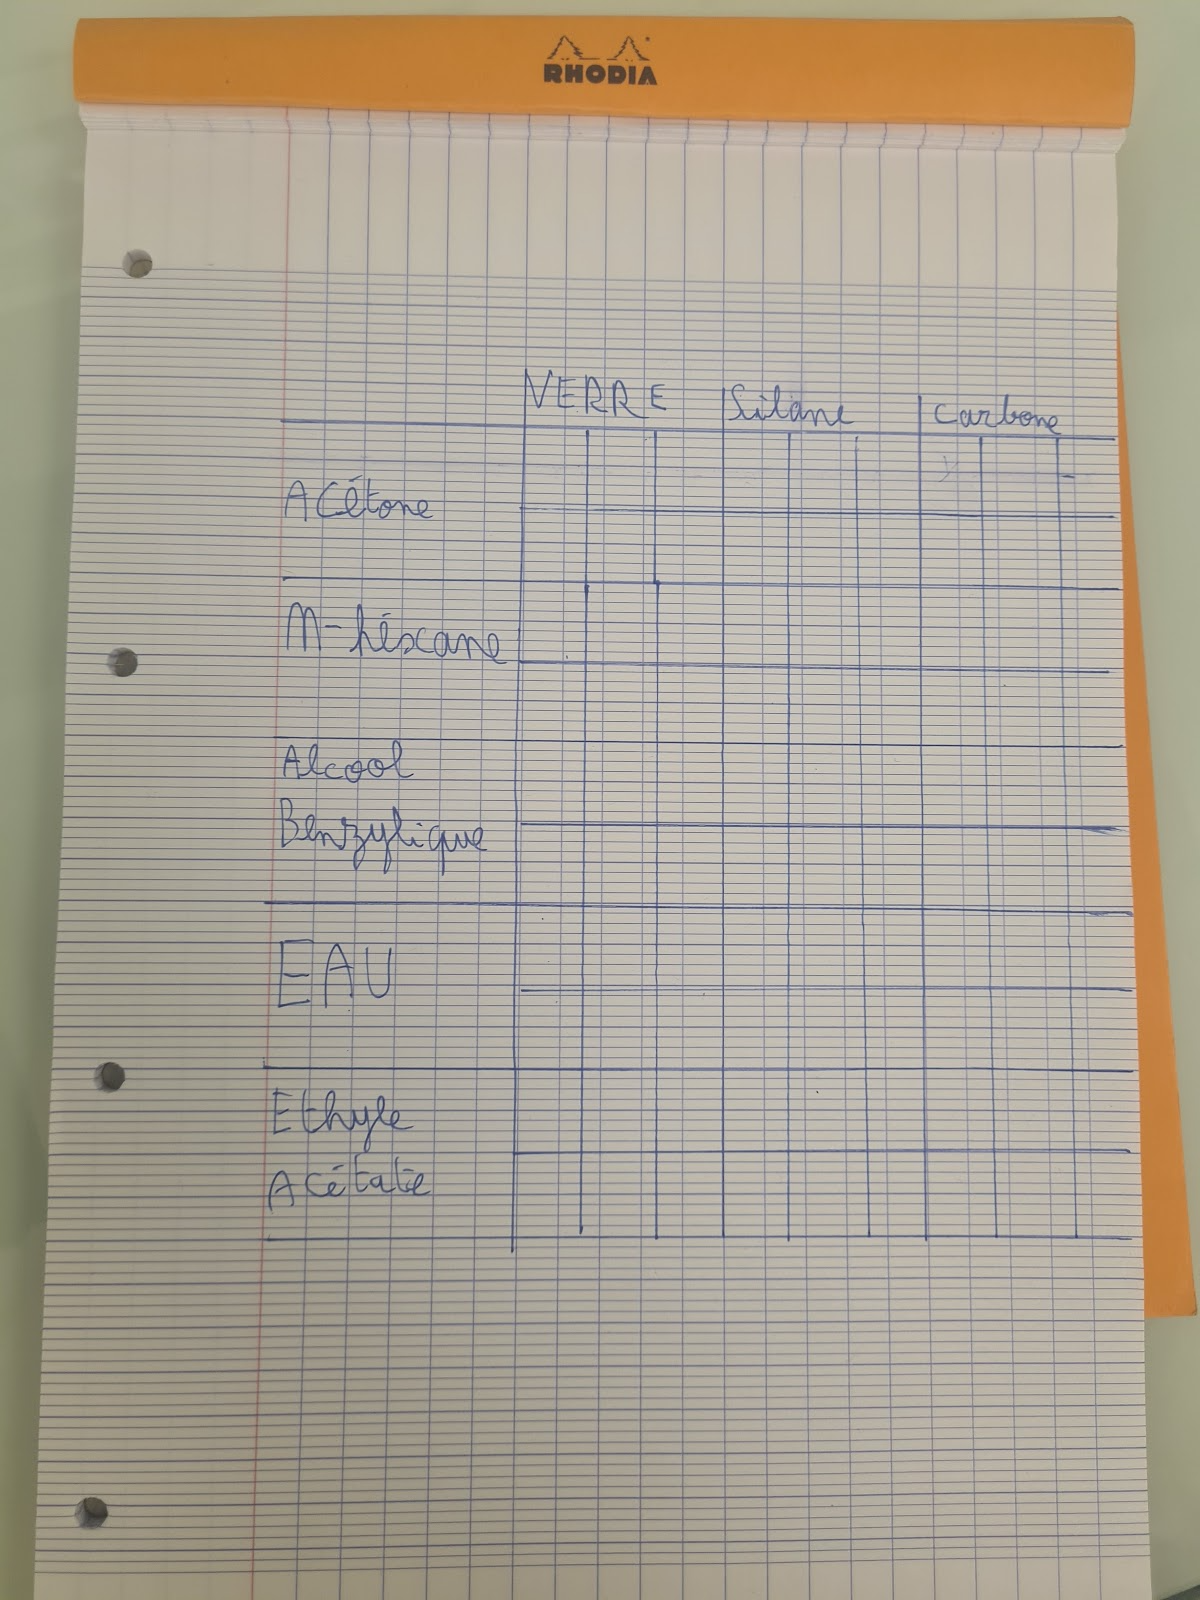 RHODIA
VERRE Silane Carbone
Acétone
M-héxane
Alcool
Benzylique
EAU
Ethyle
Acétate